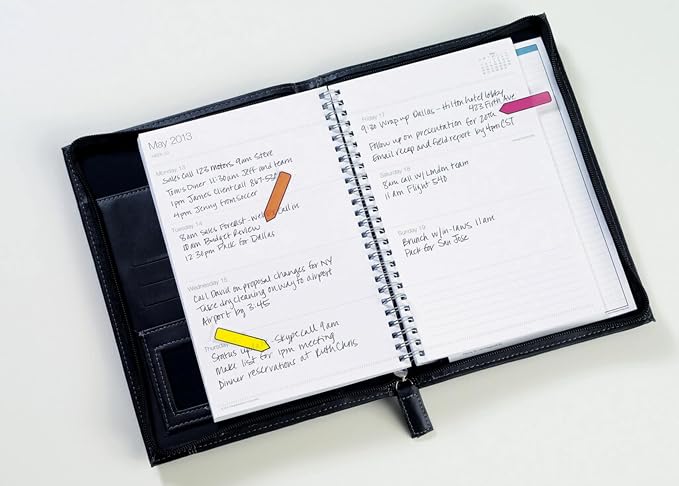 May 2013
Monday 13
Sales Call 123 motors 9am Steve
Tom's Diner 11:30am Jeff and team
1pm James Client call 867-52
4pm Jenny from soccer
Tuesday 14
8am Sales Forecast - Call in
10am Budget Review
12:30pm Pack for Dallas
Wednesday 15
Call David on proposal changes for NY
Take dry cleaning on way to airport
Airport by 3:45
Thursday
Status - Skype call 9am
Make list for 1pm meeting
Dinner reservations at Ruth Chris
Friday 17
9:30 Wrap up Dallas - Hilton hotel lobby
423 Fifth Ave
Follow up on presentation for 20th
Email recap and field report by 4pm CST
Saturday 18
8am call w/ London team
11am Flight 540
Sunday 19
Brunch w/ in-laws 11am
Pack for San Jose